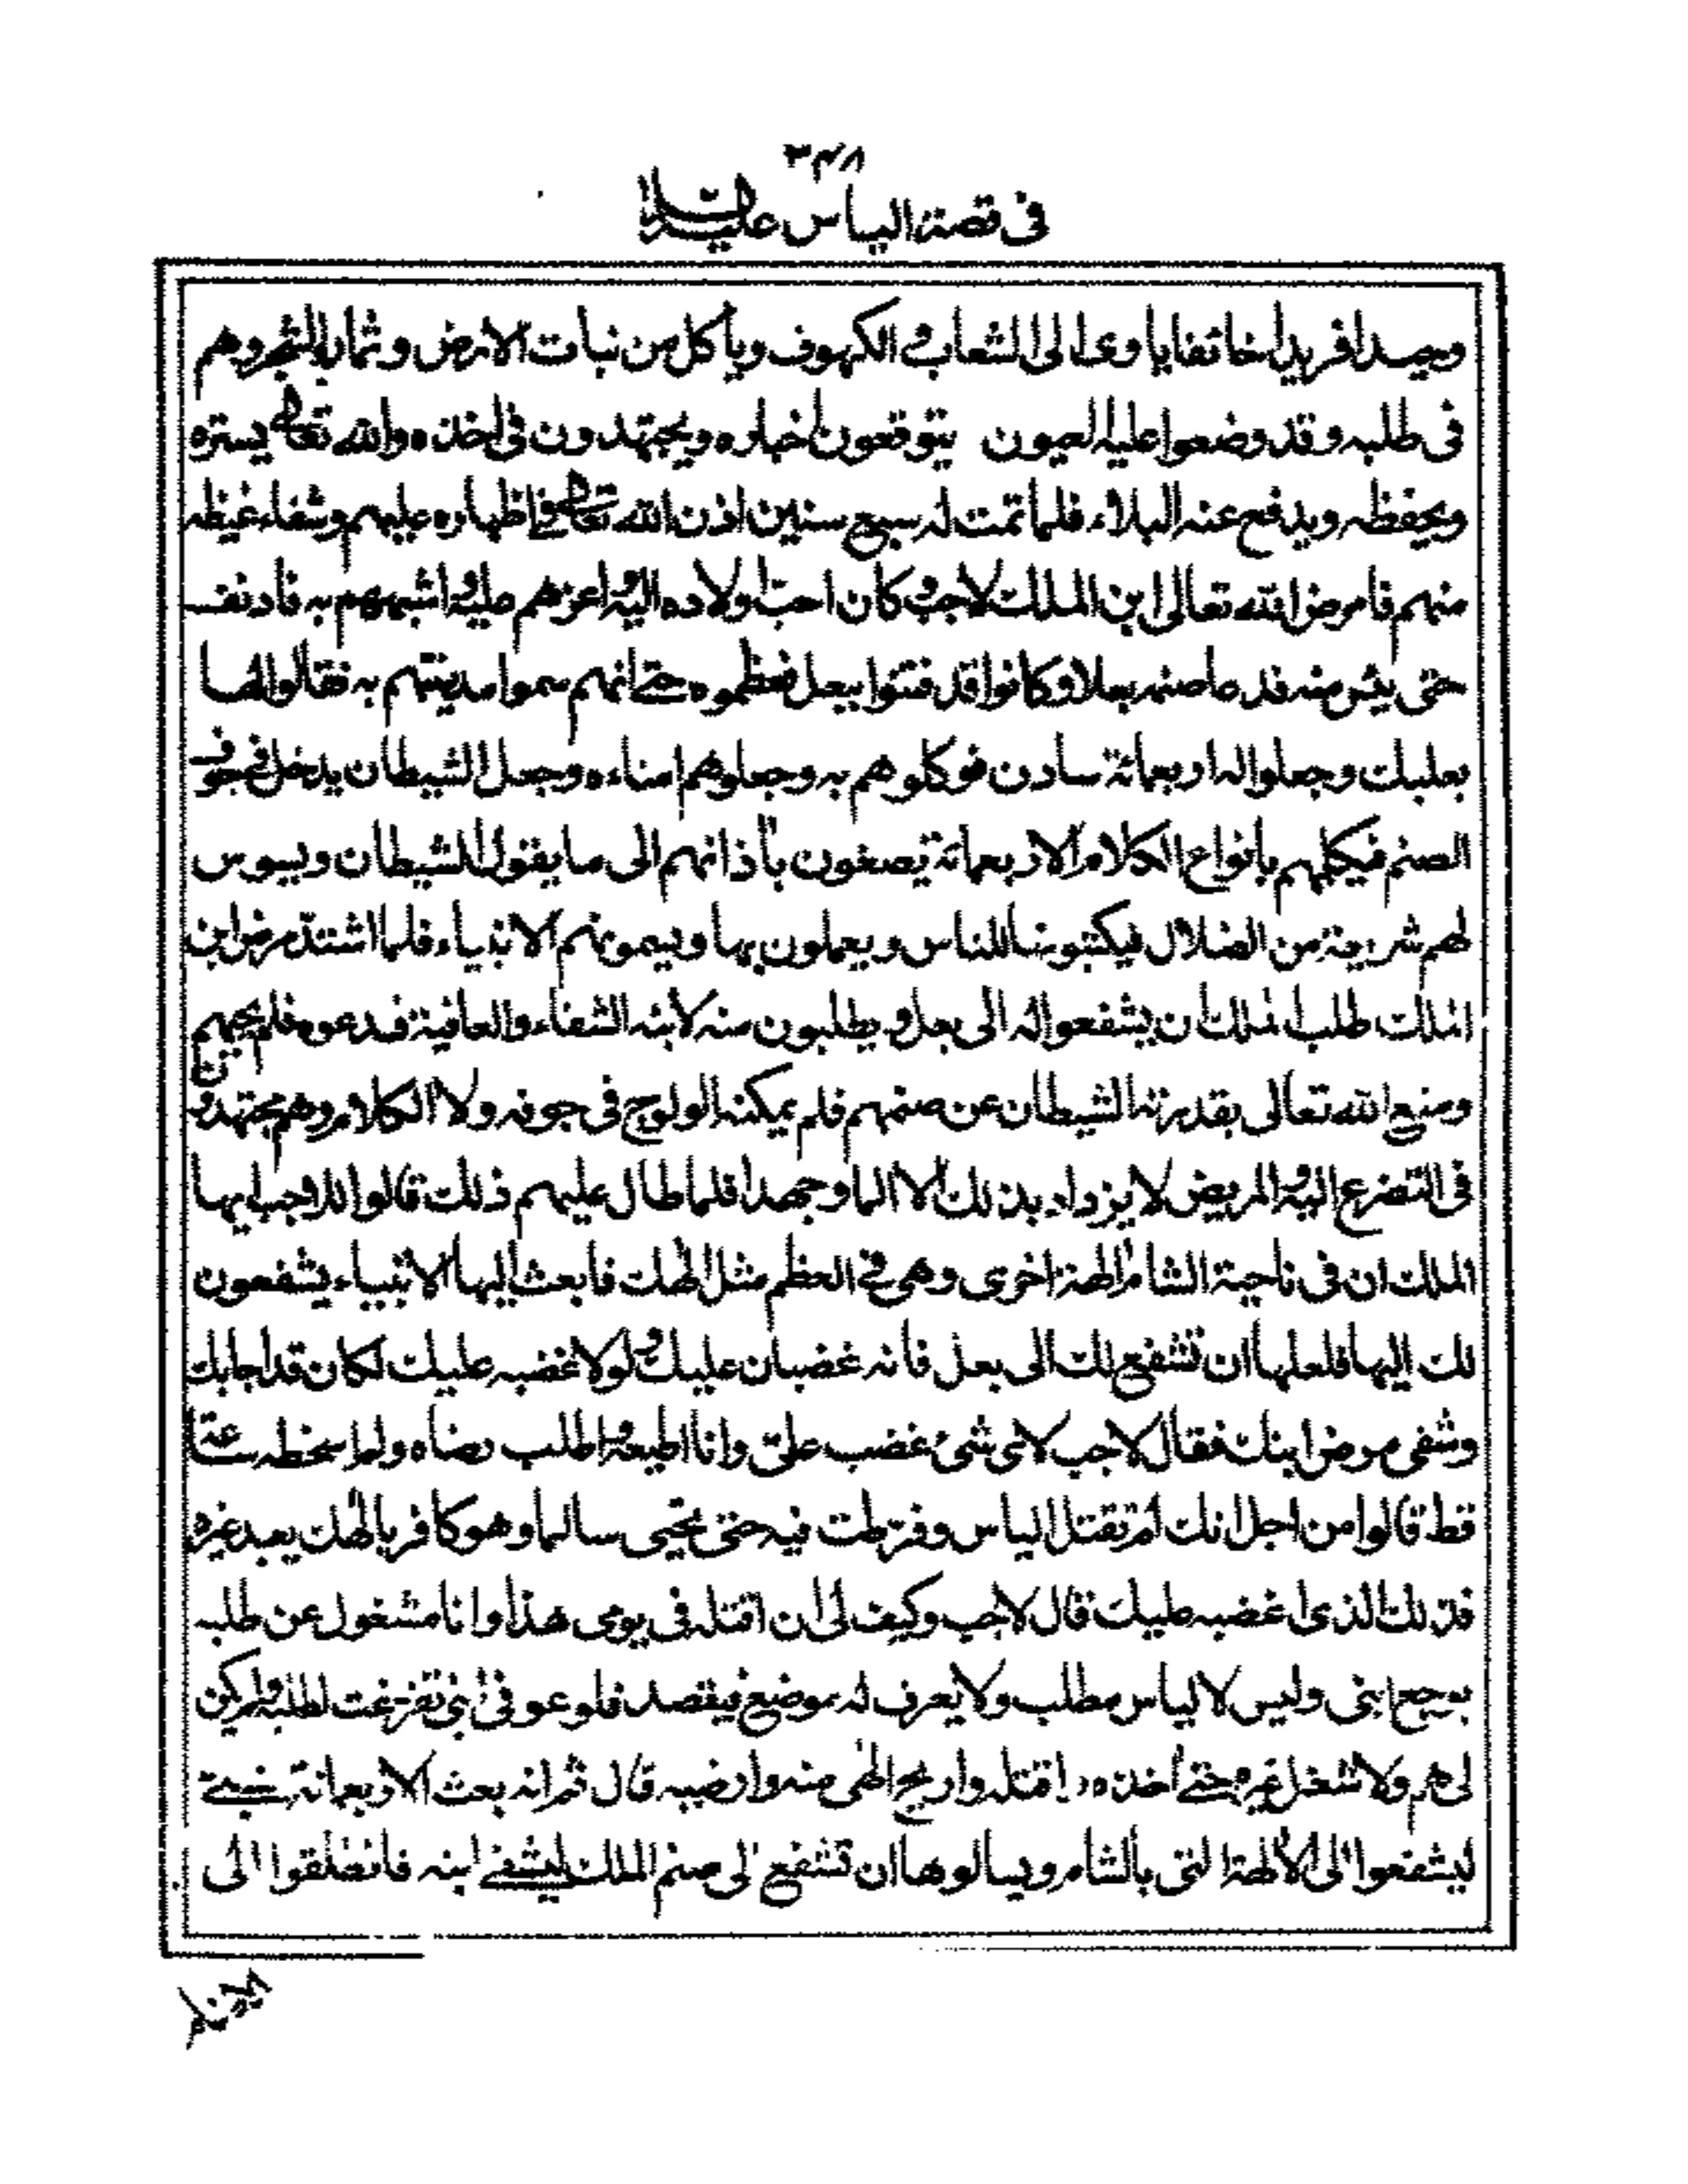 ٣٤٨
فى قصة الياس عليه السلام
وحيدا فريدا خائفا ياوى الى الشعاب و الكهوف ويأكل من نبات الارض وثمار الشجر وهم
فى طلبه وقد وضعوا عليه العيون يتوقعون اخباره ويجتهدون فى اخذه والله تعالى يستره
ويحفظه ويدفع عنه البلاء فلما تمت له سبع سنين اذن الله تعالى فى اظهاره عليهم وشفاء غيظه
منهم فامرض الله تعالى ابن الملك لاجب وكان احب اولاده اليه واعزهم عليه واشبههم به فادنفه
حتى يئس منه فدعا صنمه بعلا وكانوا قد فتنوا ببعل فعظموه حتى انهم سموا مدينتهم به فقالوا لها
بعلبك وجعلوا له اربعمائة سادن فوكلوهم به وجعلوهم امناءه وجعل الشيطان يدخل فى جوف
الصنم فيكلمهم بانواع الكلام الاربعمائة يصغون باذانهم الى ما يقول الشيطان ويسوس
لهم شريعة من الضلال فيكتبونها للناس ويعملون بها ويسمونهم الانبياء فلما اشتد مرض ابن
الملك طلب الملك ان يشفعوا له الى بعل ويطلبون منه لابنه الشفاء والعافية فدعوه فلم يجبهم
ومنع الله تعالى بقدرته الشيطان عن صنمهم فلم يمكنه الولوج فى جوفه ولا الكلام وهم مجتهدون
فى التضرع اليه والمريض لا يزداد بذلك الا الما وجهدا فلما طال عليهم ذلك قالوا للاجب ايها
الملك ان فى ناحية الشام الهة اخرى وهى فى العظم مثل الهك فابعث اليها الانبياء يشفعون
لك اليها فلعلها ان تشفع لك الى بعل فانه غضبان عليك ولولا غضبه عليك لكان قد اجابك
وشفى مرض ابنك فقال لاجب لاى شئ غضب على وانا اطيعه واطلب رضاه ولم اسخطه ساعة
قط قالوا من اجل انك لم تقتل الياس وفرطت فيه حتى يحيى سالما وهو كافر بالهك يعبد غيره
فذلك الذى اغضبه عليك قال لاجب وكيف لى ان اقتله فى يومى هذا وانا مشغول عن طلبه
بوجع ابنى وليس لالياس مطلب ولا يعرف له موضع فيقصد فلو عوفى ابنى تفرغت لطلبه ولم يكن
لى هم ولا شغل غيره حتى اخذه و اقتله واريح الهى منه وارضيه قال ثم انه بعث الاربعمائة
ليشفعوا الى الالهة التى بالشام ويسالوها ان تشفع لى صنم الملك ليشفى ابنه فانطلقوا الى